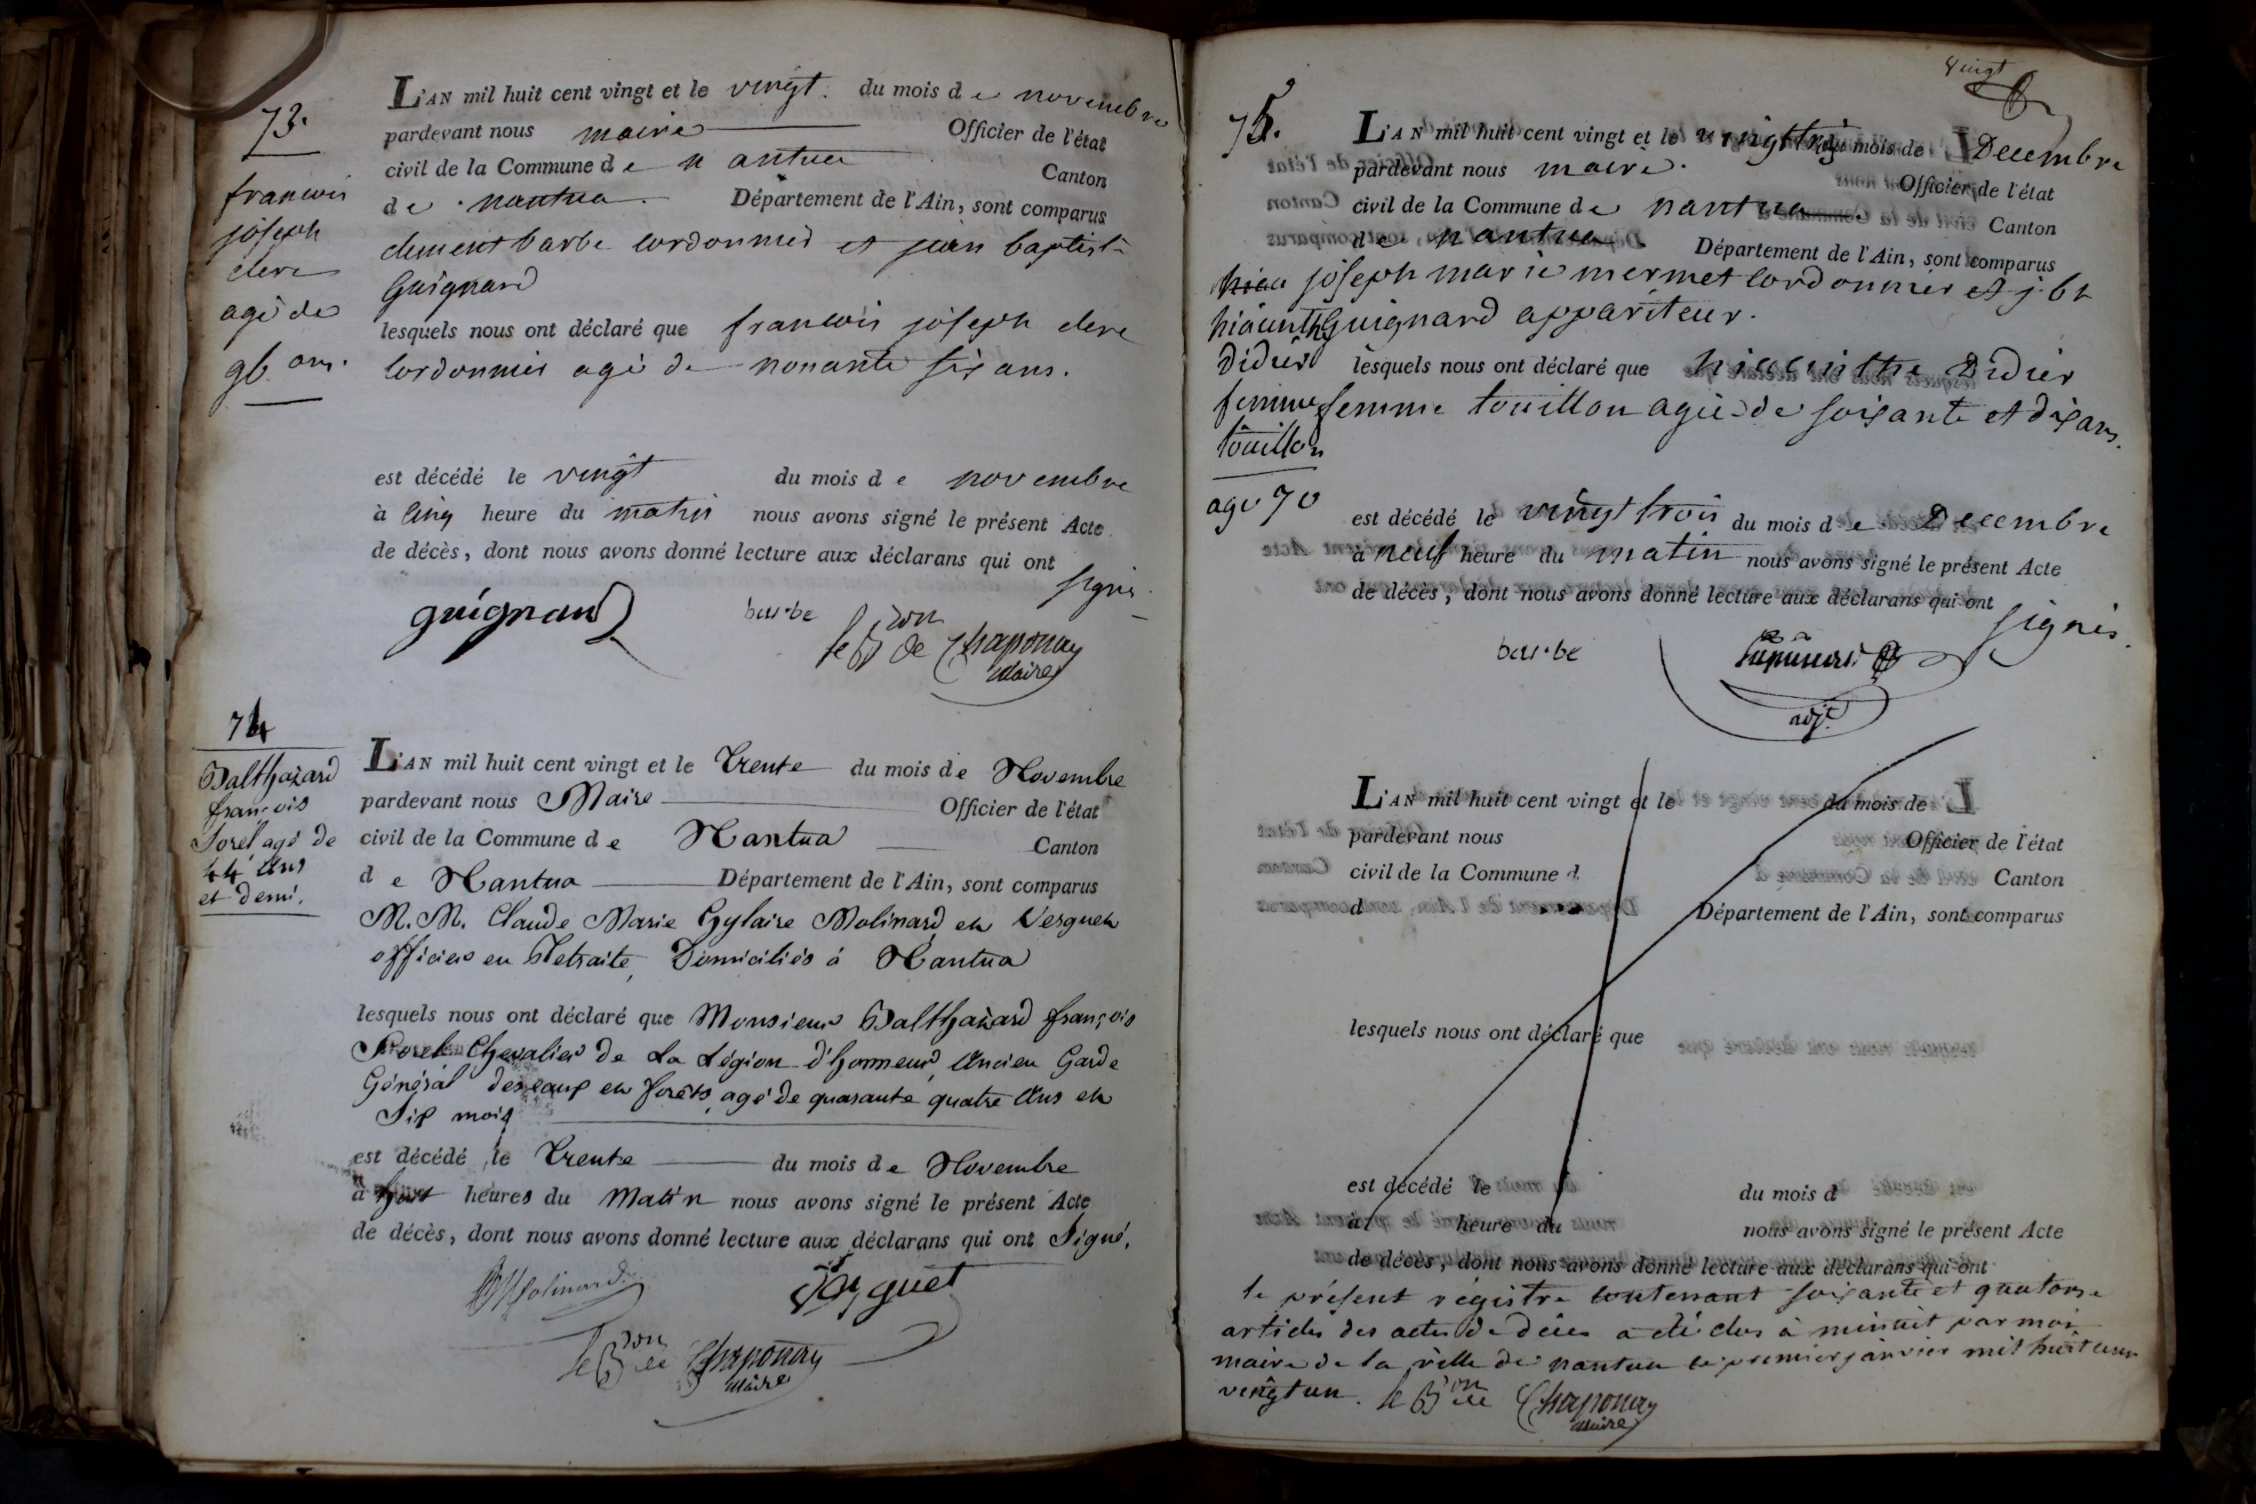 73.
francois
joseph
clerc
agé de
96 ans.
L'AN mil huit cent vingt et le vingt. du mois de novembre
pardevant nous maire Officier de l'état
civil de la Commune de nantua Canton
de nantua. Département de l'Ain, sont comparus
clement barbe cordonnier et jean baptiste
Guignard
lesquels nous ont déclaré que francois joseph clerc
cordonnier agé de nonante six ans.
est décédé le vingt du mois de novembre
à cinq heure du matin nous avons signé le présent Acte
de décès, dont nous avons donné lecture aux déclarans qui ont
signés
guignard barbe
le Bon de Chaponay
Maire
74
Balthazard
françois
Sorel agé de
44 ans
et demi.
L'AN mil huit cent vingt et le Trente du mois de Novembre
pardevant nous Maire Officier de l'état
civil de la Commune de Nantua Canton
de Nantua Département de l'Ain, sont comparus
M.M. Claude Marie Hylaire Molinard et Verguet
officiers en Retraite, Domiciliés à Nantua
lesquels nous ont déclaré que Monsieur Balthazard françois
Sorel Chevalier de la Légion d'honneur, Ancien Garde
Général des eaux et forêts, agé de quarante quatre Ans et
Six mois
est décédé le Trente du mois de Novembre
à huit heures du Matin nous avons signé le présent Acte
de décès, dont nous avons donné lecture aux déclarans qui ont Signé.
Molinard Verguet
le Bon de Chaponay
Maire
Vingt
75.
L'AN mil huit cent vingt et le vingt trois du mois de Decembre
pardevant nous maire. Officier de l'état
civil de la Commune de nantua Canton
de nantua Département de l'Ain, sont comparus
joseph marie mermet cordonnier et j. bt
Guignard appariteur.
hiacinthe
Didier
femme
touillon
age 70
lesquels nous ont déclaré que hiacinthe Didier
femme touillon agée de soixante et dix ans.
est décédé le vingt trois du mois de Decembre
à neuf heure du matin nous avons signé le présent Acte
de décès, dont nous avons donné lecture aux déclarans qui ont
signés.
barbe
adjt.
L'AN mil huit cent vingt et le du mois de
pardevant nous Officier de l'état
civil de la Commune d Canton
d Département de l'Ain, sont comparus
lesquels nous ont déclaré que
est décédé le du mois d
à heure du nous avons signé le présent Acte
de décès, dont nous avons donné lecture aux déclarans qui ont
le présent régistre contenant soixante et quatorze
articles des actes de décès a été clos à minuit par moi
maire de la ville de nantua le premier janvier mil huit cent
vingt un. le Bon de Chaponay
Maire